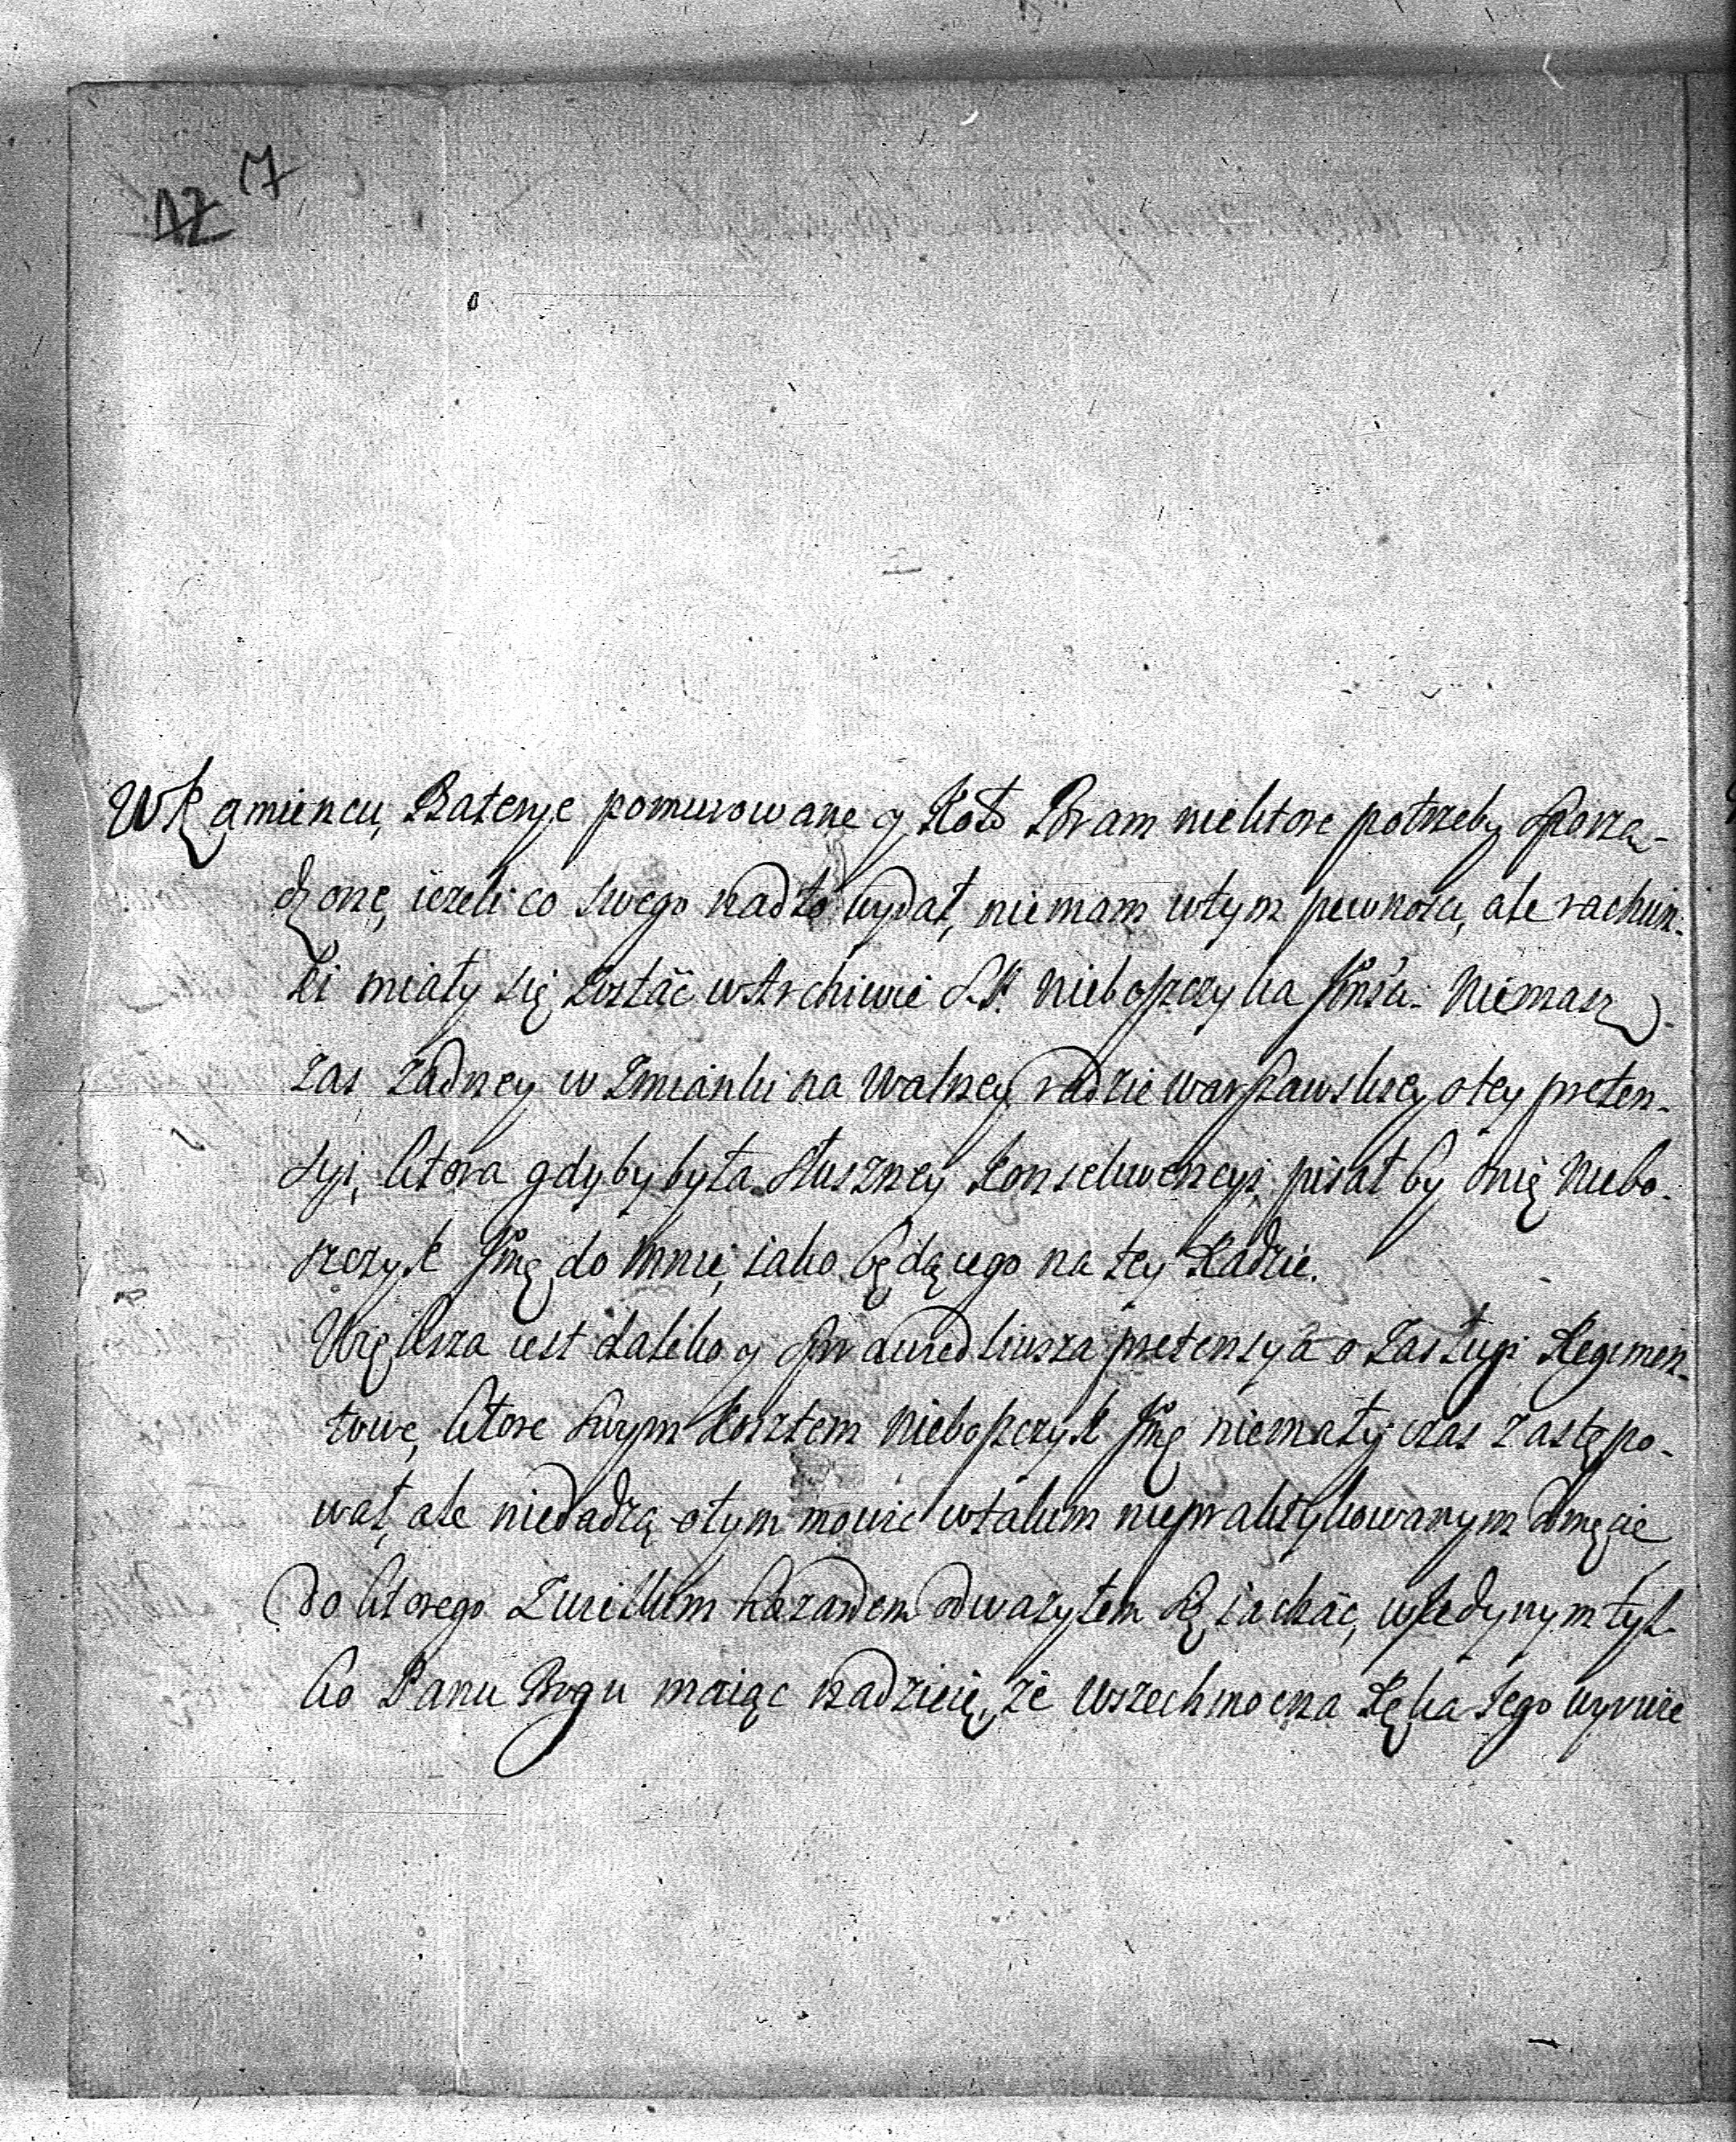 12 7
W Kamiencu, Baterye pomurowane y Koło Bram niektore potrzeby sporzą-
dzone, iezeli co swego nadto wydał, niemam wtym pewnosci, ale rachun-
ki miały się zostać w Archiwie S.P. Nieboszczyka Jmsci. Niemasz
zas zadney wzmianki na Walney radzie warszawskiey o tey preten-
syi, ktora gdyby była słuszney konsekwencyi, pisał by onię Niebo-
szczyk Jmę do mnie, iako będącego na tey Radzie.
Większa iest daleko y sprawiedliwsza pretensya o Zasługi Regimen-
towe, ktore swym kosztem Nieboszczyk Jmę niemały czas zastępo-
wał, ale niedadzą otym mowić wtakim niepraktykowanym odmęcie
do ktorego Zwielkim hazardem odwazyłem się iachać, w Jedynym tyl-
ko Panu Bogu maiąc nadzieię, że wszechmocna Ręka Jego wyrwie